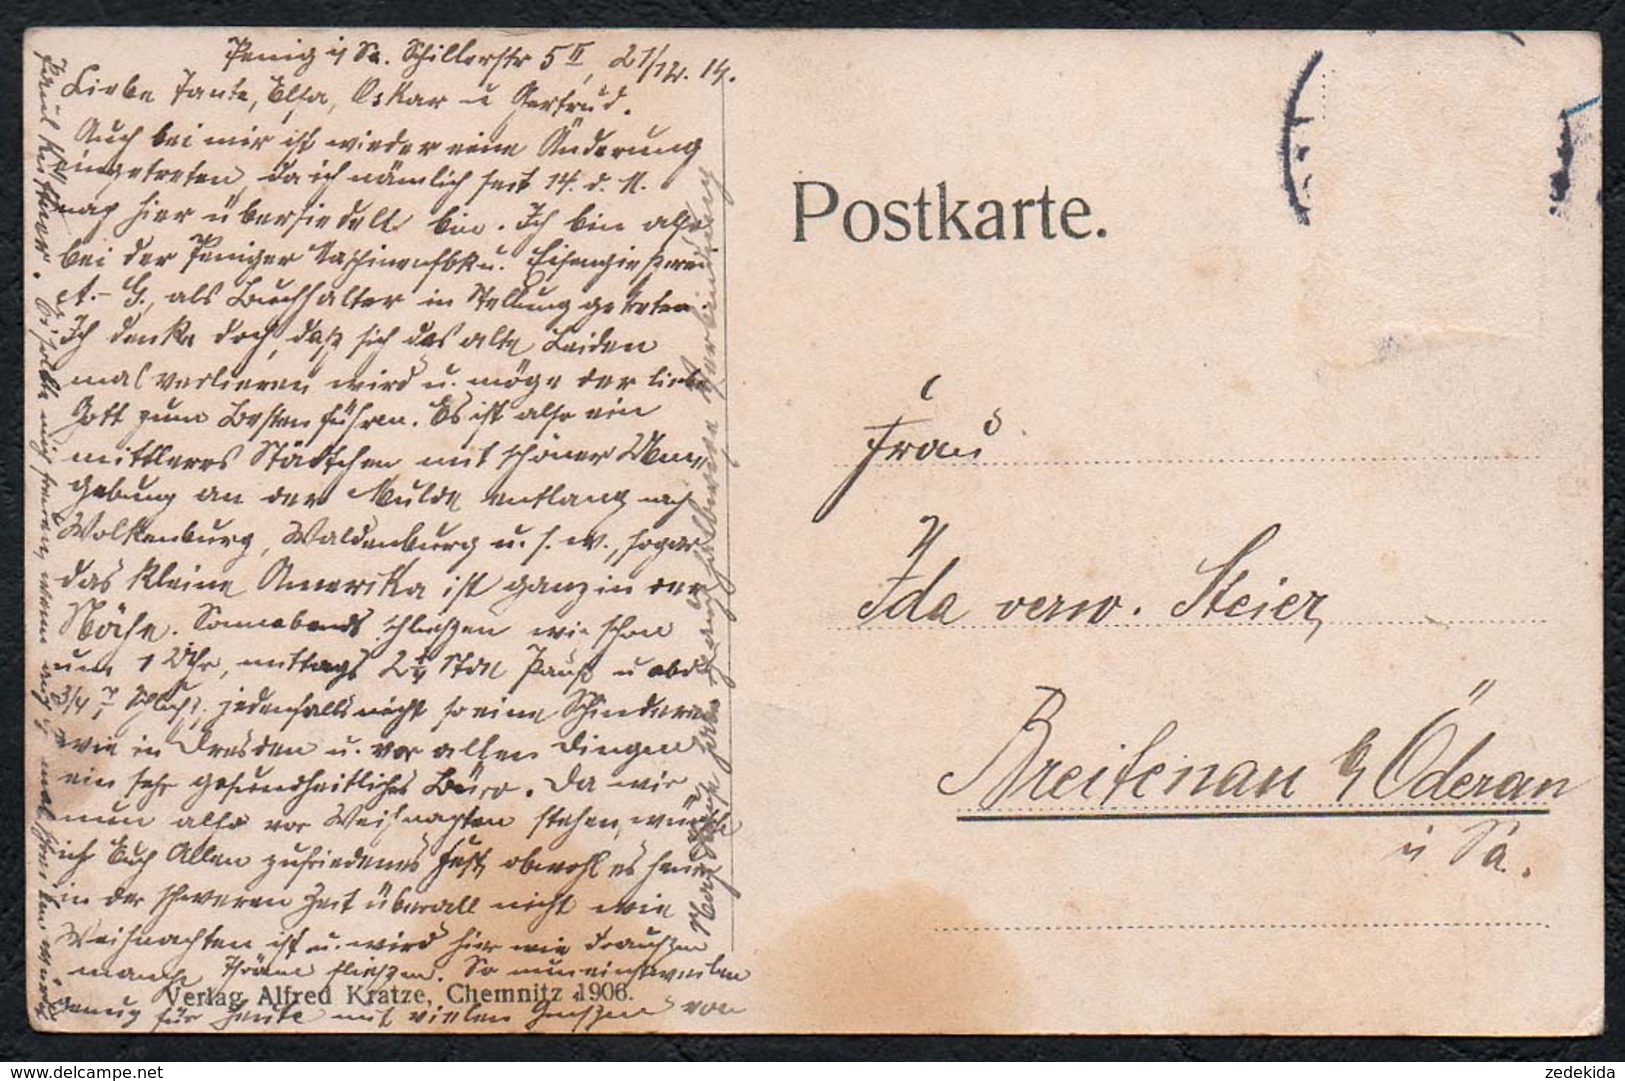 Penig i/ Sa. Schillerstr 5 II, 21/12. 14.
Liebe Tante, Elsa, Oskar u Gertrud.
Auch bei mir ist wieder eine Änderung
eingetreten, da ich nämlich seit 14. d. M.
nach hier übersiedelt bin. Ich bin also
bei der Peniger Maschinenfbk u. Eisengießerei
A.-G., als Buchhalter in Stellung getreten.
Ich denke doch, daß sich das alte Leiden
mal verlieren wird u. möge der liebe
Gott zum Besten führen. Es ist also ein
mittleres Städtchen mit schöner Um-
gebung an der Mulde entlang nach
Wolkenburg, Waldenburg u. s. w., sogar
das kleine Amerika ist ganz in der
Nähe. Sonnabends schließen wir schon
um 1 Uhr, mittags 2 1/4 Stdn Pause u abds
3/4 7 Schluß, jedenfalls nicht so eine Schinderei
wie in Dresden u. vor allen Dingen
ein sehr gesundheitliches Büro. Da wir
nun also vor Weihnachten stehen, wünsche
ich Euch Allen zufriedenes Fest, obwohl es heuer
in der schweren Zeit überall nicht wie
Weihnachten ist u. wird hier wie draußen
manche Thräne fließen. So nun einstweilen
genug für heute mit vielen Grüßen von
Paul Küttner. Es sollte mich freuen, wenn auch mal schreiben würdet
Nach
Verbindung
Verlag Alfred Kratze, Chemnitz 1906.
Postkarte.
Frau
Ida verw. Steier,
Breitenau b/ Öderan
i/ Sa.
zedekida